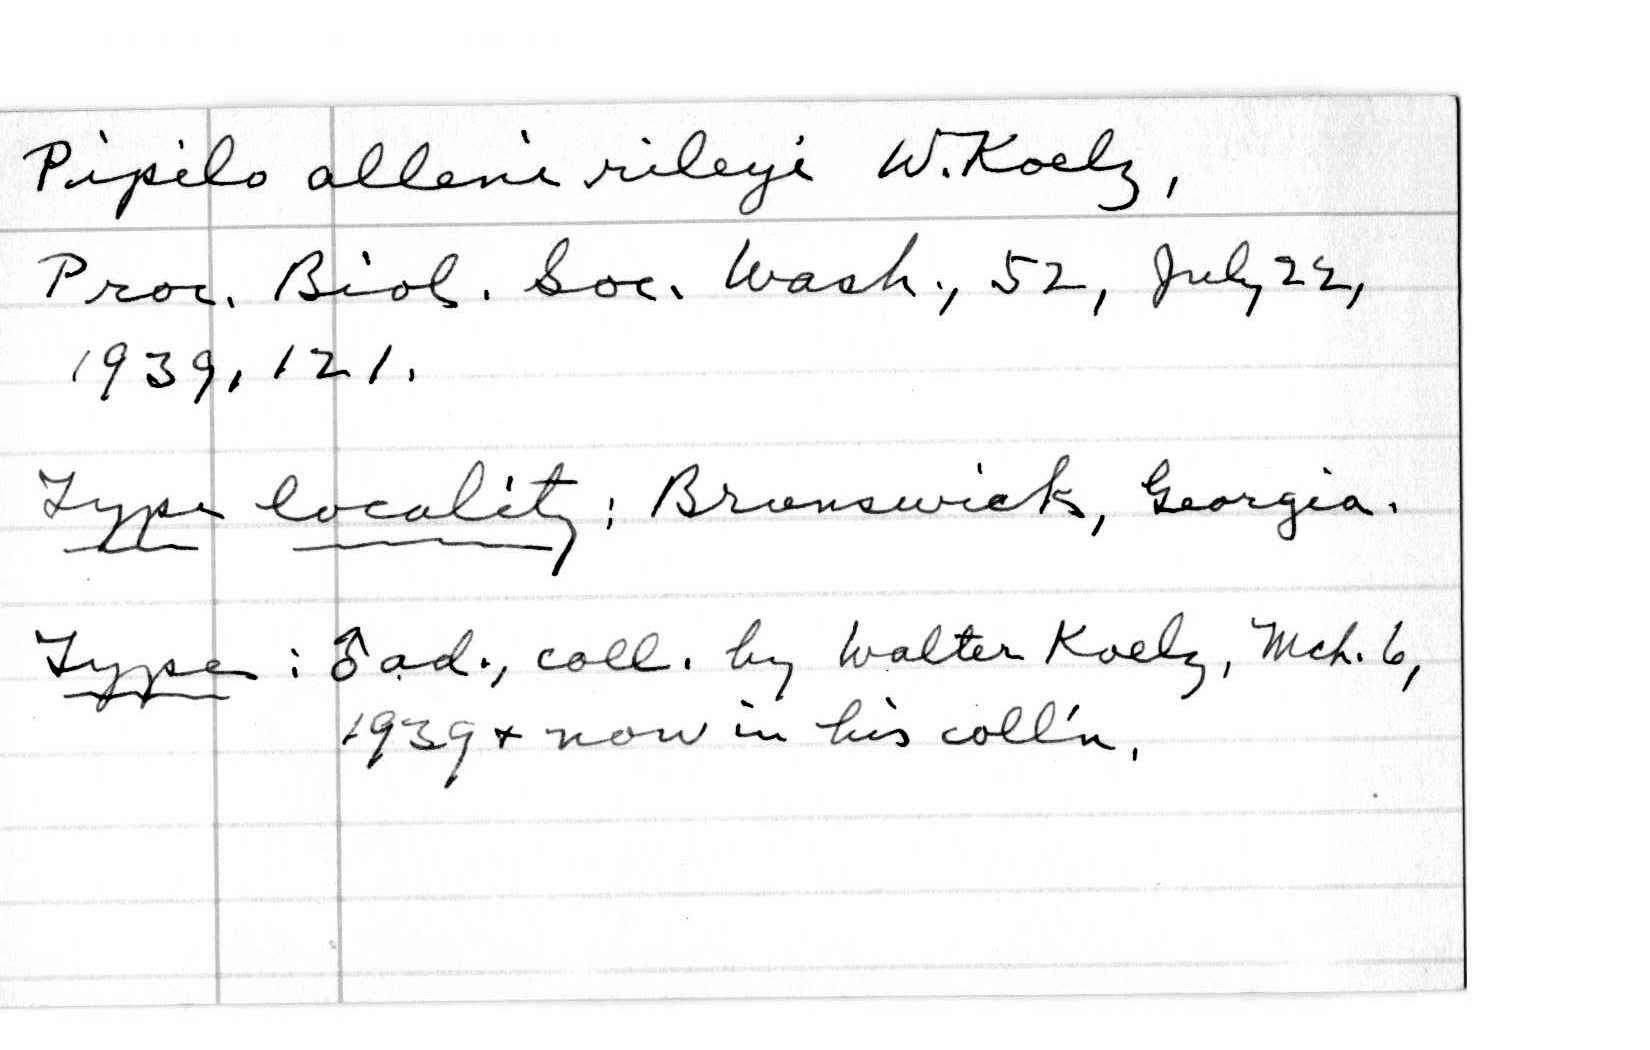 Pipilo alleni rileyi W. Koelz,
Proc. Biol. Soc. Wash., 52, July 22,
1939, 121.
Type locality: Brunswick, Georgia.
Type: ♂ ad., coll. by Walter Koelz, Mch. 6,
1939 + now in his coll'n.